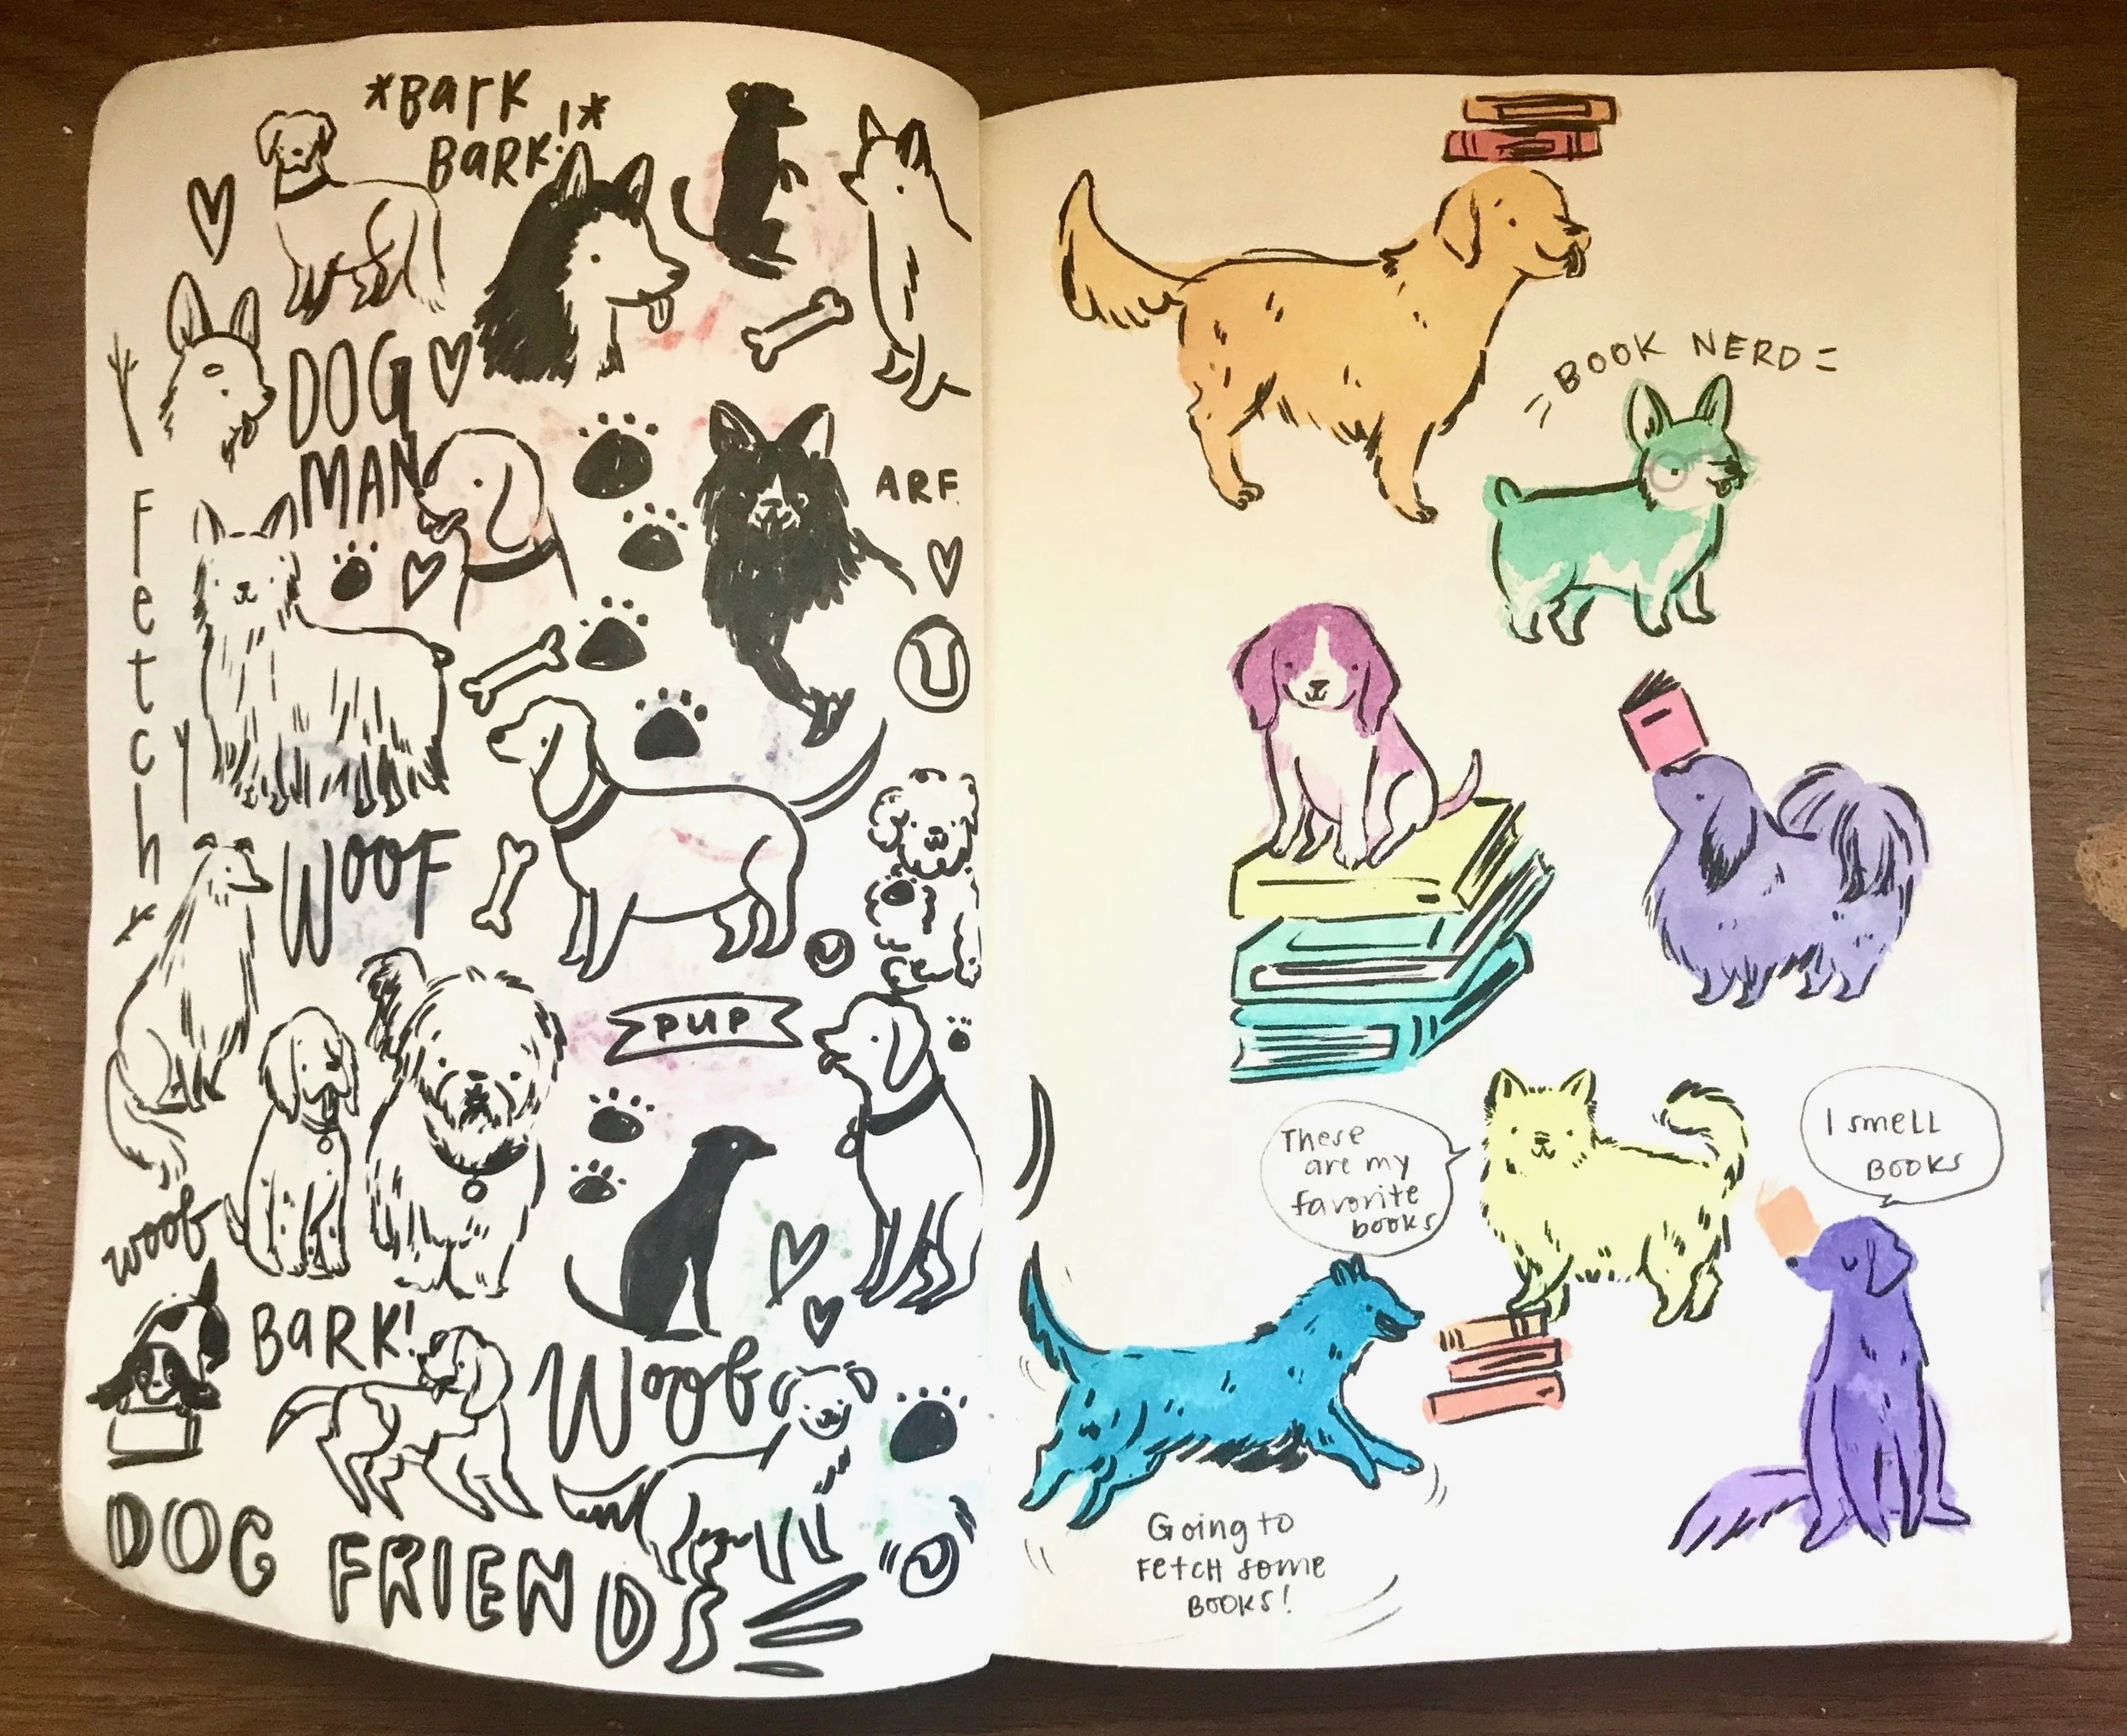 *Bark
BARK!*
DOG
MAN
ARF
Fetch
WOOF
PUP
woof
BARK!
Woof
DOG FRIENDS
BOOK NERD
These
are my
favorite
books
I smell
BOOKS
Going to
FetcH some
BOOKS!